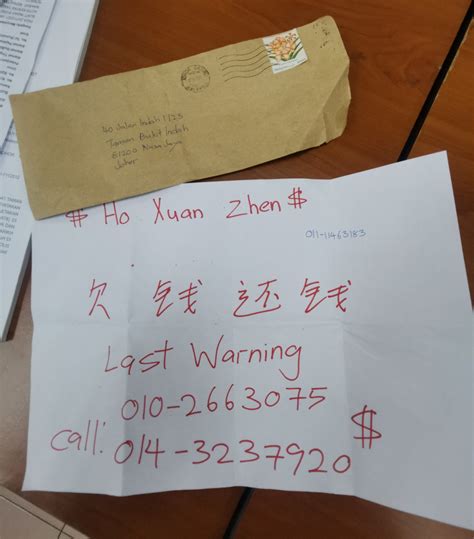 40 Jalan Indah 1/23
Taman Bukit Indah
81200 Nusa Jaya
Johor
$ Ho Xuan Zhen $
011-11463183
欠 钱 还 钱
Last Warning
010-2663075
call: 014-3237920 $